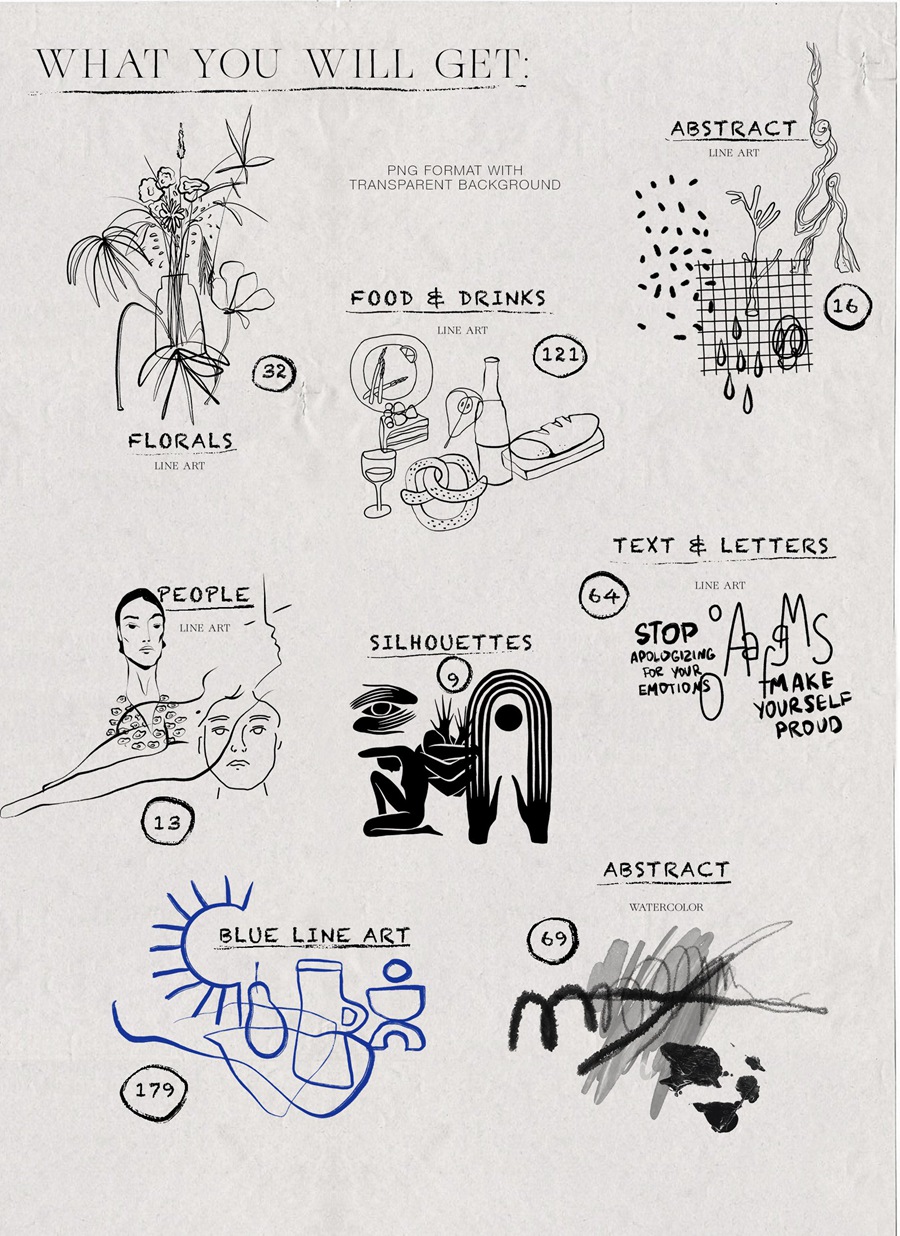 WHAT YOU WILL GET:
ABSTRACT
LINE ART
16
PNG FORMAT WITH
TRANSPARENT BACKGROUND
FOOD & DRINKS
LINE ART
121
32
FLORALS
LINE ART
TEXT & LETTERS
LINE ART
64
STOP
APOLOGIZING
FOR YOUR
EMOTIONS
MAKE
YOURSELF
PROUD
PEOPLE
LINE ART
13
SILHOUETTES
9
BLUE LINE ART
179
ABSTRACT
WATERCOLOR
69